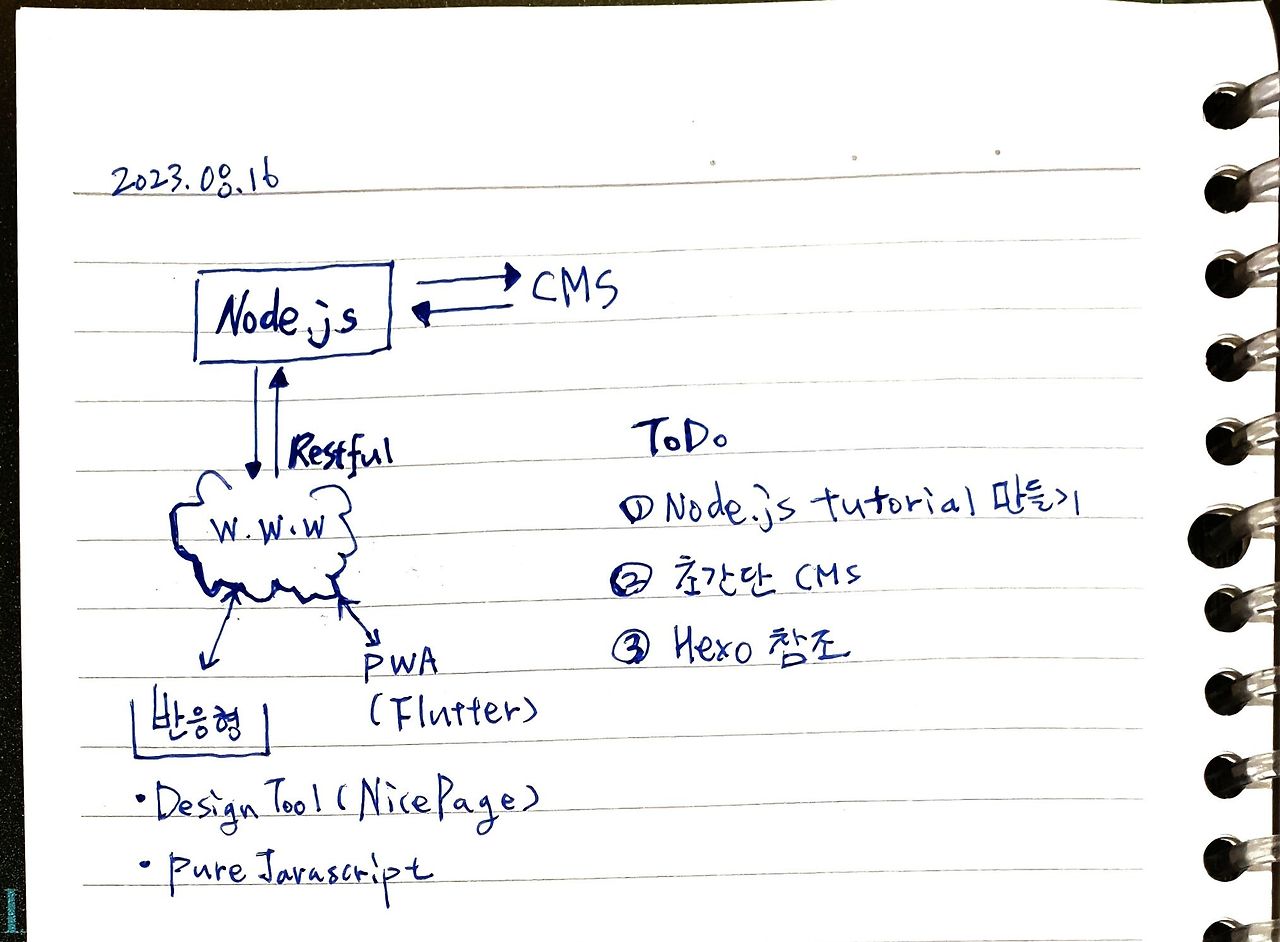 2023.08.16
Node.js
CMS
Restful
W.W.W
PWA
(Flutter)
반응형
• Design Tool (NicePage)
• pure Javascript
ToDo
① Node.js tutorial 만들기
② 초간단 CMS
③ Hexo 참조